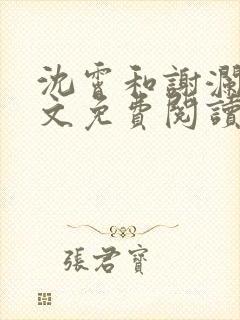 沈霄和謝瀾
文免費閱讀
張君寶